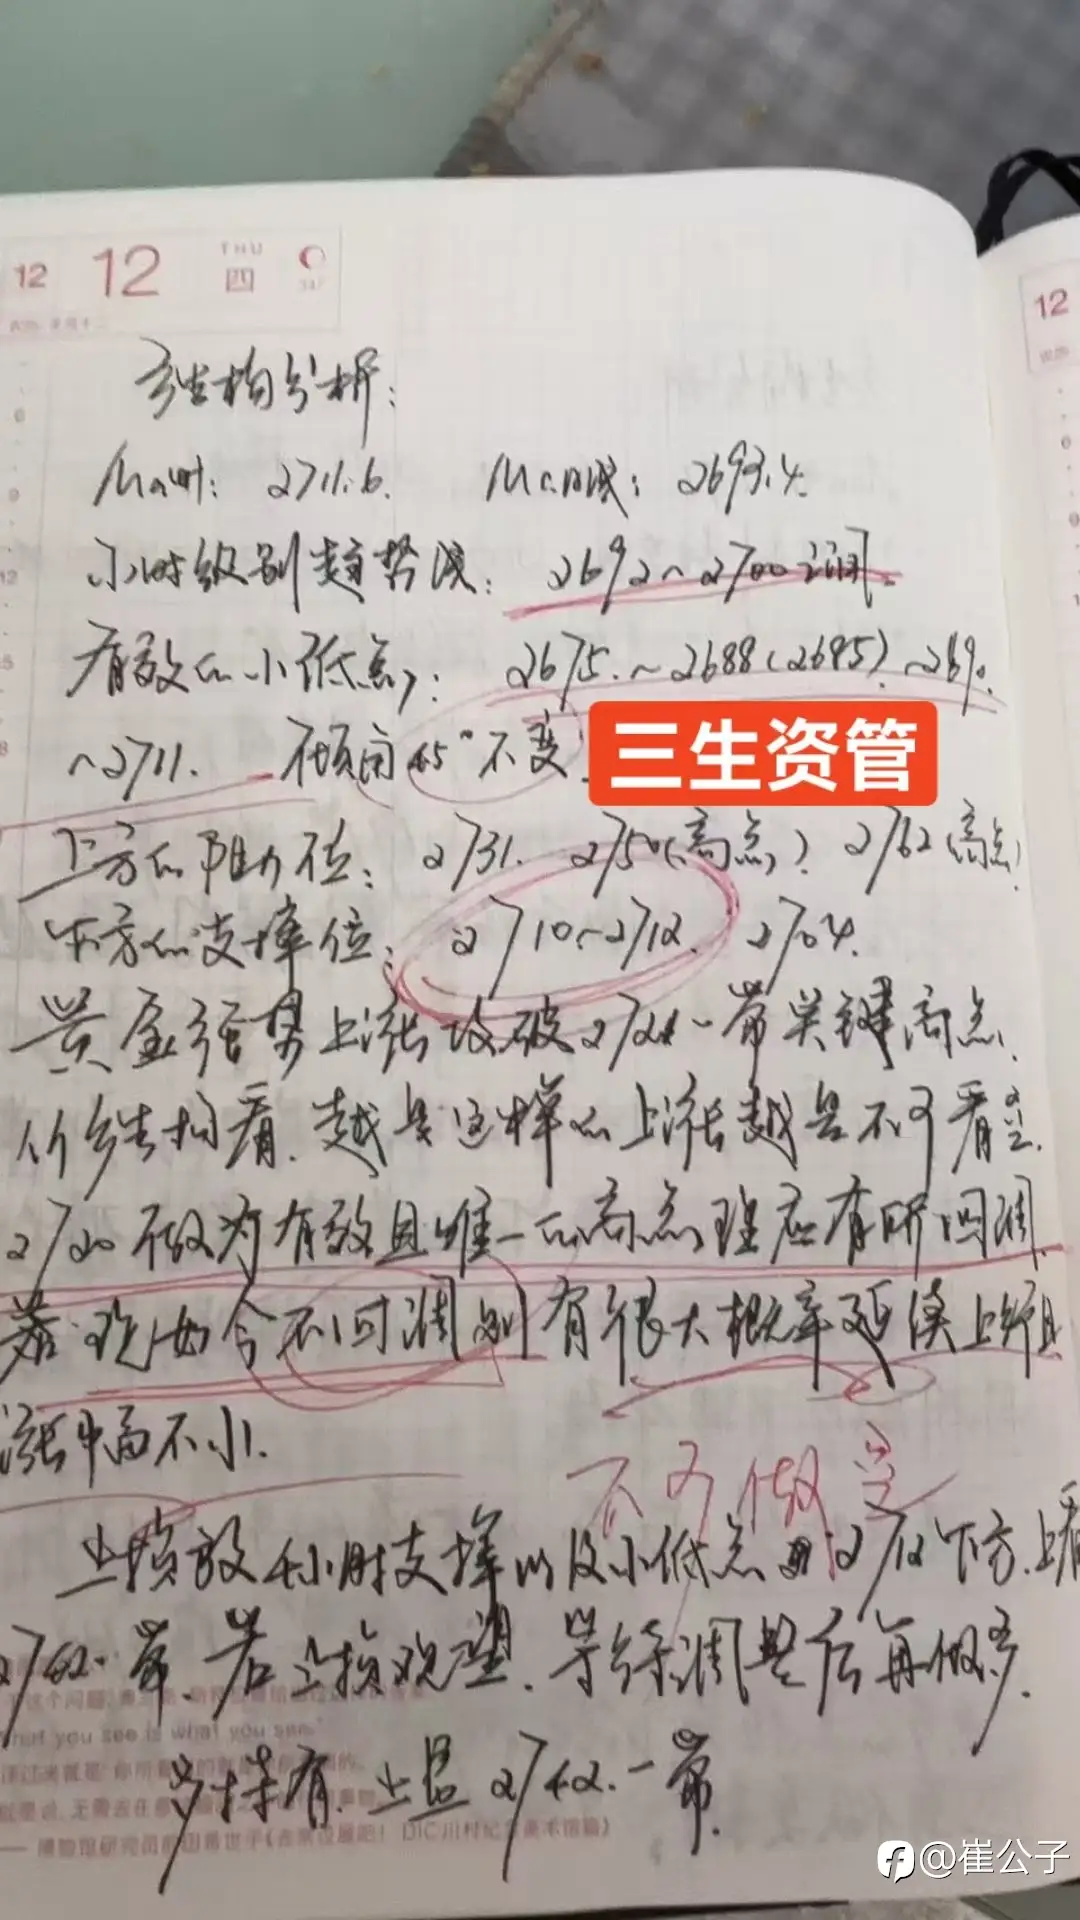 12 12 THU
四
12
结构分析:
Ma时: 2711.6. Ma日线: 2693.4.
小时级别趋势线: 2692~2700之间.
有效的小低点: 2675.~2688(2685).~2690.
~2711. 倾角45°不变
三生资管
上方的阻力位: 2731. 2750(高点) 2762(高点)
下方的支撑位: 2710~2712. 2704.
黄金强势上涨攻破2721一带关键高点.
价结构看.越是这样的上涨越是不可看空.
2720做为有效且唯一的高点理应有所回调.
若现如今不回调则有很大概率延续上行且
涨幅不小.
不可做空
止损放4小时支撑以及小低点 2712下方.上看
2762.一带.若止损观望.等待调整后再做多.
多持有.止盈2742.一带.
hat you see is what you see."
DIC川村纪念美术馆
@崔公子